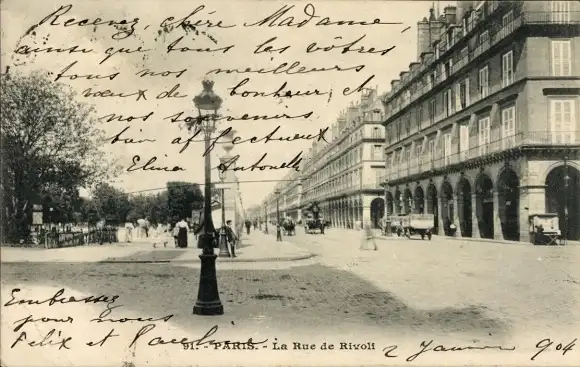 Recevez, chère Madame,
ainsi que tous les vôtres
tous nos meilleurs
vœux de bonheur, et
nos souvenirs
bien affectueux
Elina Antonelli
Embrassez
pour nous
Félix et Pauline
91. - PARIS. - La Rue de Rivoli
2 Janvier 904